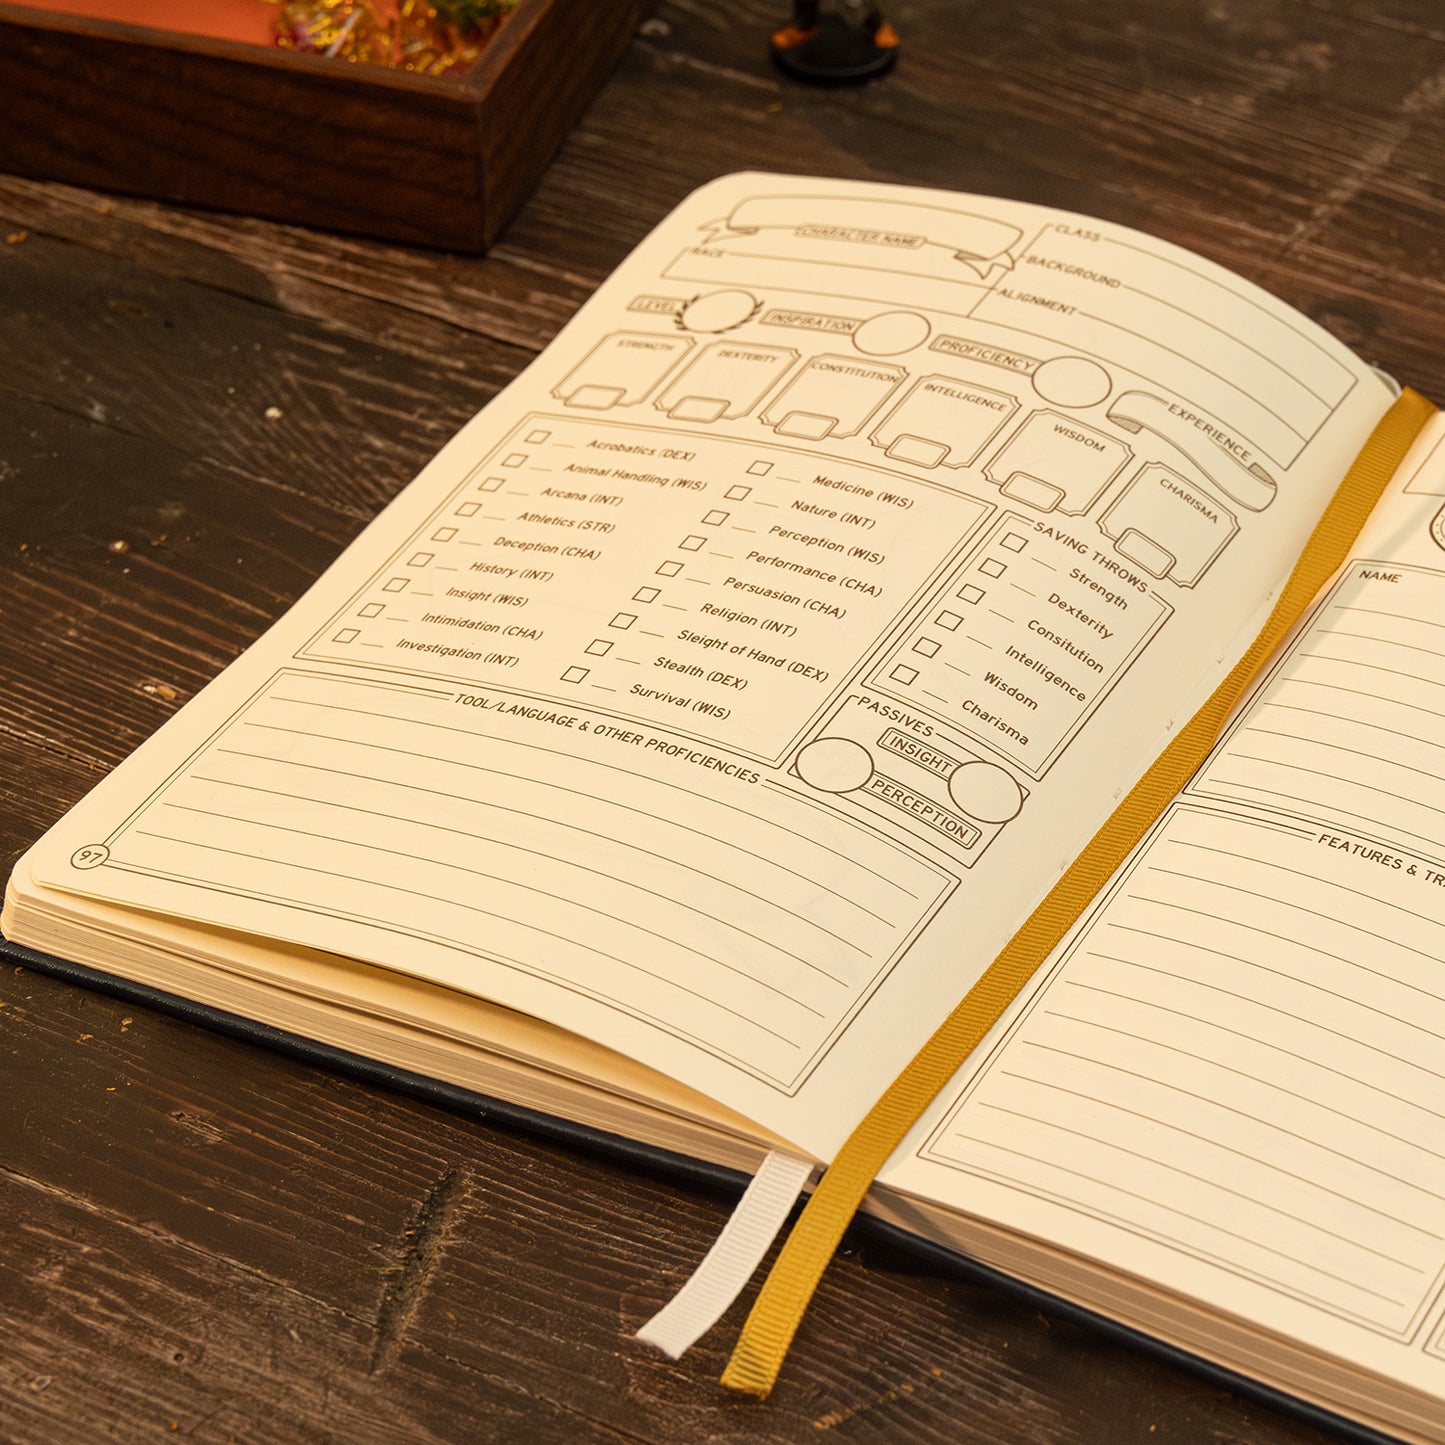 CHARACTER NAME
RACE
CLASS
BACKGROUND
ALIGNMENT
LEVEL
INSPIRATION
PROFICIENCY
EXPERIENCE
STRENGTH
DEXTERITY
CONSTITUTION
INTELLIGENCE
WISDOM
CHARISMA
Acrobatics (DEX)
Animal Handling (WIS)
Arcana (INT)
Athletics (STR)
Deception (CHA)
History (INT)
Insight (WIS)
Intimidation (CHA)
Investigation (INT)
Medicine (WIS)
Nature (INT)
Perception (WIS)
Performance (CHA)
Persuasion (CHA)
Religion (INT)
Sleight of Hand (DEX)
Stealth (DEX)
Survival (WIS)
SAVING THROWS
Strength
Dexterity
Consitution
Intelligence
Wisdom
Charisma
PASSIVES
INSIGHT
PERCEPTION
TOOL/LANGUAGE & OTHER PROFICIENCIES
97
NAME
FEATURES & TRA